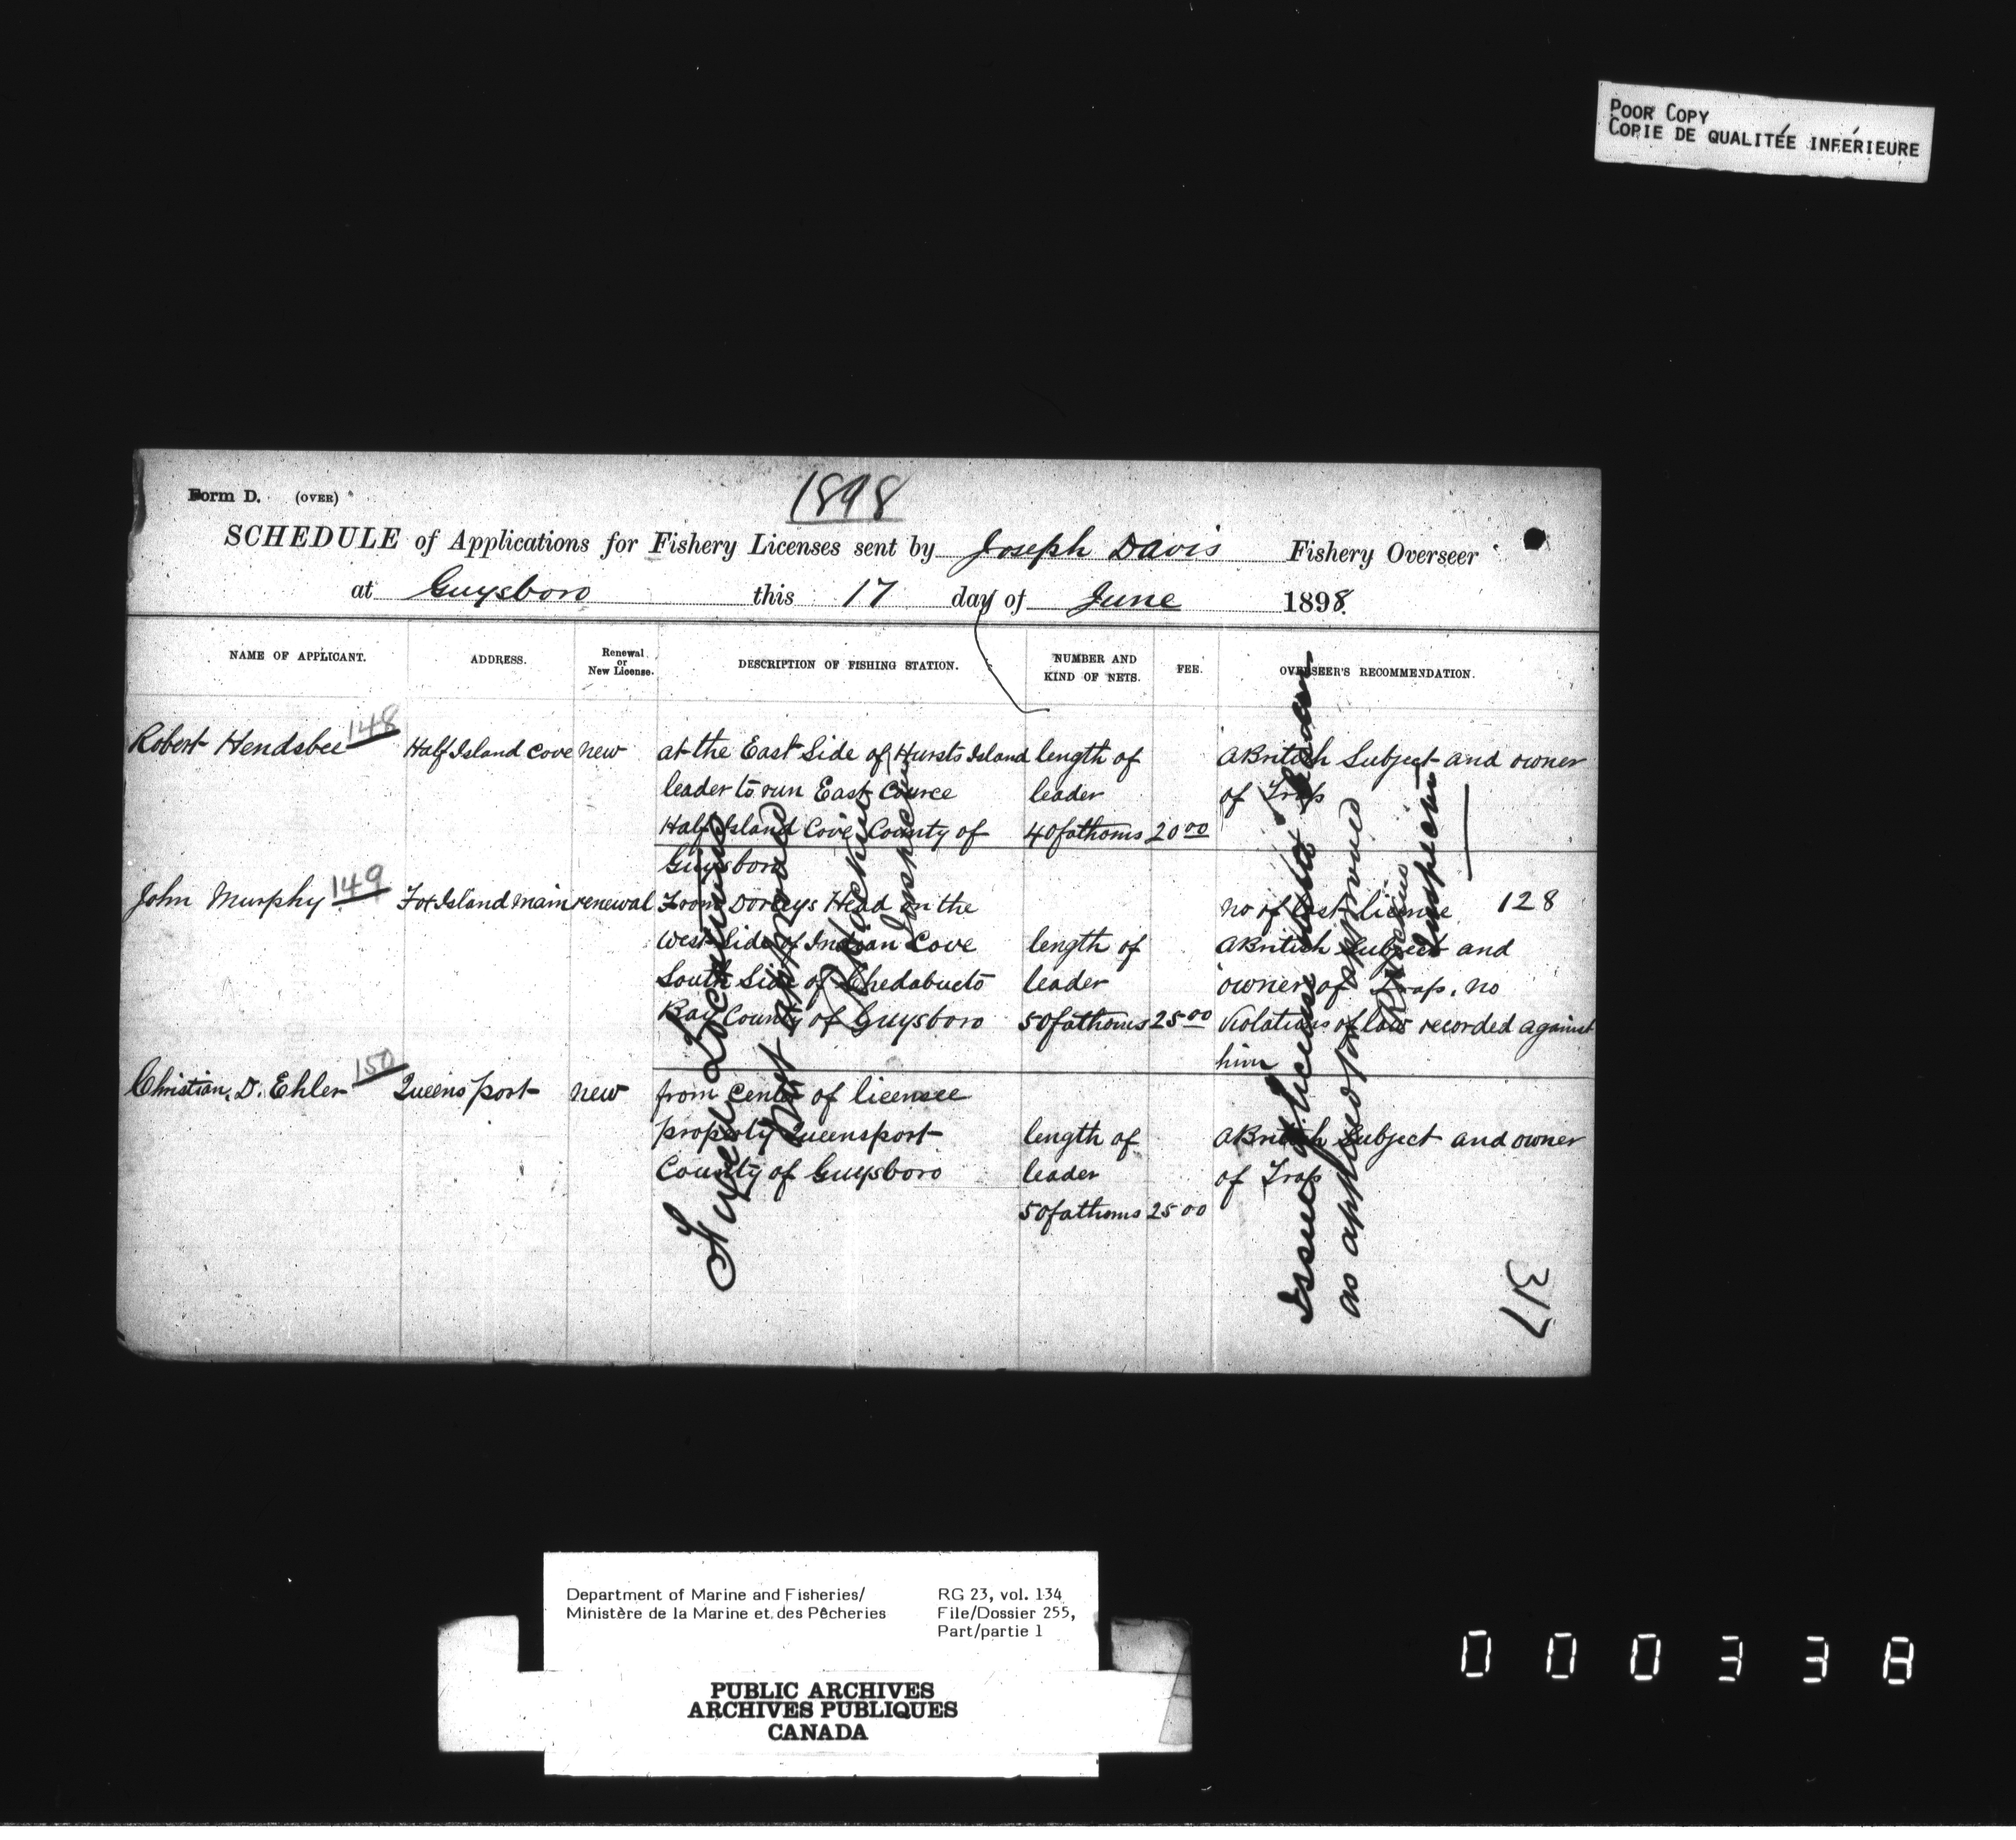 POOR COPY
COPIE DE QUALITÉE INFÉRIEURE
Form D. (OVER)
1898
SCHEDULE of Applications for Fishery Licenses sent by Joseph Davis Fishery Overseer
at Guysboro this 17 day of June 1898.
NAME OF APPLICANT. ADDRESS. Renewal or New License. DESCRIPTION OF FISHING STATION. NUMBER AND KIND OF NETS. FEE. OVERSEER'S RECOMMENDATION.
148
Robert Hendsbee Half Island Cove new at the East Side of Hursts Island length of a British Subject and owner
leader to run East Cource leader of Trap
Half Island Cove County of 40 fathoms 20 00
Guysboro
149
John Murphy Fox Island main renewal From Dorreys Head on the no of last license 128
West Side of Indian Cove length of a British Subject and
South Side of Chedabucto leader owner of Trap, no
Bay County of Guysboro 50 fathoms 25 00 Violations of law recorded against
him
150
Christian. D. Ehler Queensport new from Center of licensee
property Queensport length of a British Subject and owner
County of Guysboro leader of Trap
50 fathoms 25 00
not approved
Inspector
Issue of license
as applied for approved
Inspector
317
Department of Marine and Fisheries/
Ministère de la Marine et des Pêcheries
RG 23, vol. 134
File/Dossier 255,
Part/partie 1
PUBLIC ARCHIVES
ARCHIVES PUBLIQUES
CANADA
000338